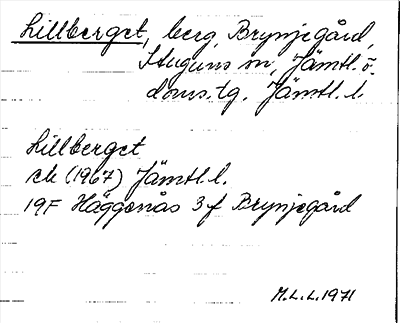 Lillberget, berg, Brynjegård,
Stuguns sn, Jämtl. ö.
doms.tg. Jämtl. l.
Lillberget
ek (1967) Jämtl. l.
19F Häggenås 3 f Brynjegård
M.L.L. 1971